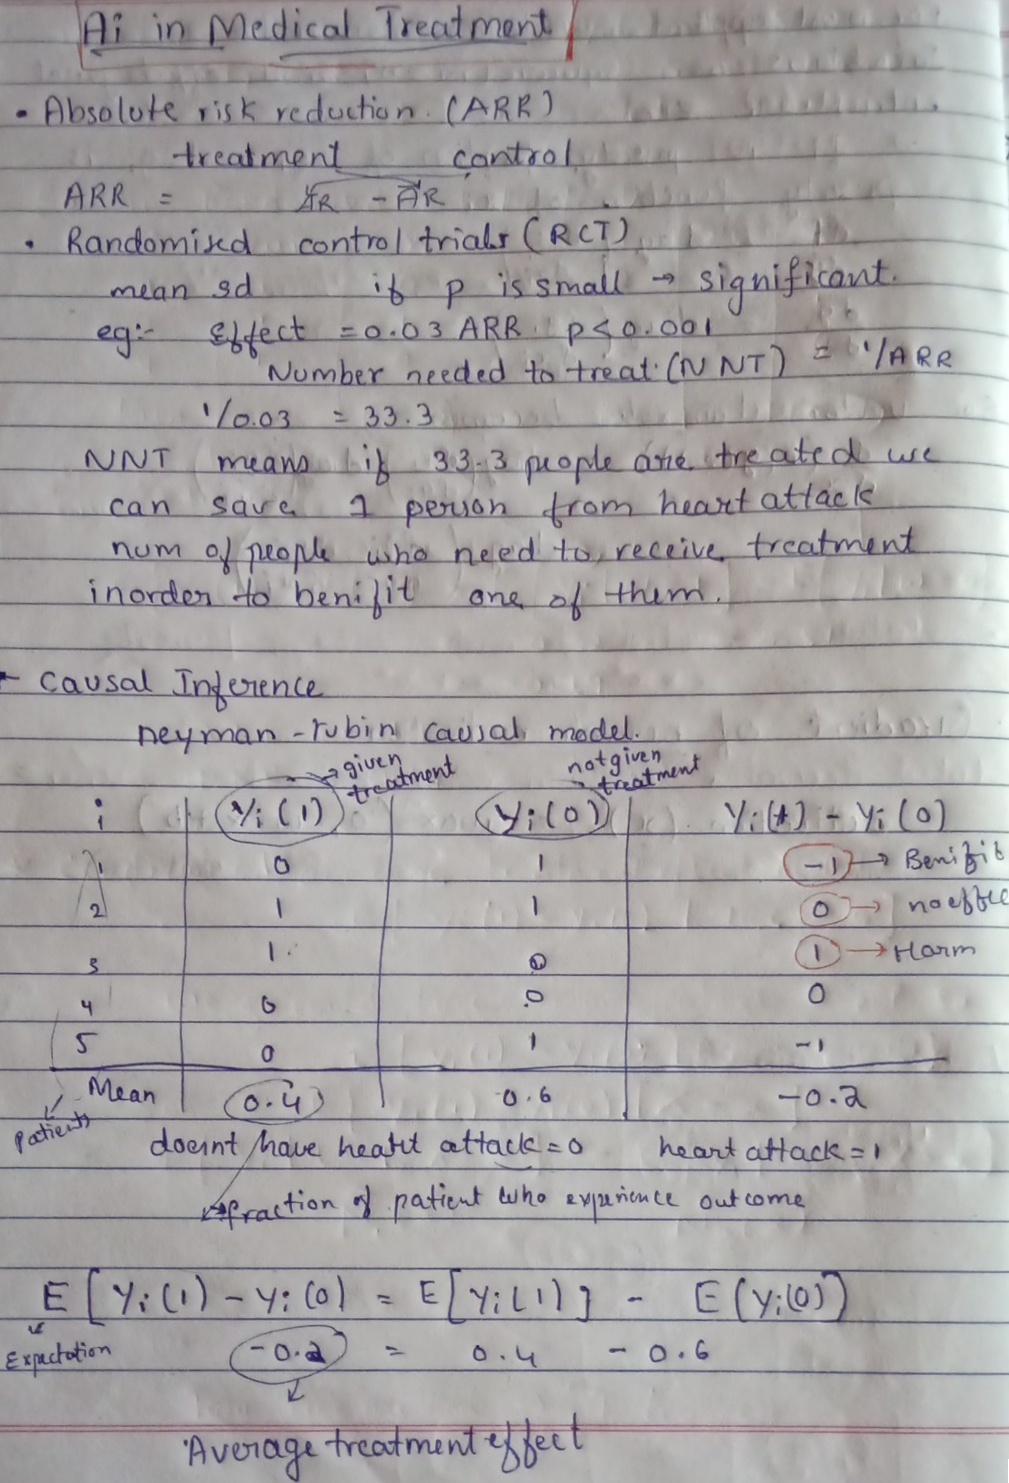 Ai in Medical Treatment
• Absolute risk reduction. (ARR)
treatment control
ARR = AR - AR
• Randomised control trials (RCT)
mean sd if p is small → significant.
eg:- Effect = 0.03 ARR p<0.001
Number needed to treat (NNT) = 1/ARR
1/0.03 = 33.3
NNT means if 33.3 people are treated we
can save 1 person from heart attack
num of people who need to receive treatment
inorder to benifit one of them.
- Causal Inference
neyman-rubin causal model.
→ given treatment not given treatment
i Yi(1) Yi(0) Yi(1) - Yi(0)
1 0 1 -1 → Benifit
2 1 1 0 → noeffec
3 1 0 1 → Harm
4 0 0 0
5 0 1 -1
Mean 0.4 0.6 -0.2
patients
doesnt have heart attack = 0 heart attack = 1
fraction of patient who experience outcome
E[Yi(1) - Yi(0) = E[Yi(1)] - E(Yi(0))
Expectation -0.2 = 0.4 - 0.6
Average treatment effect